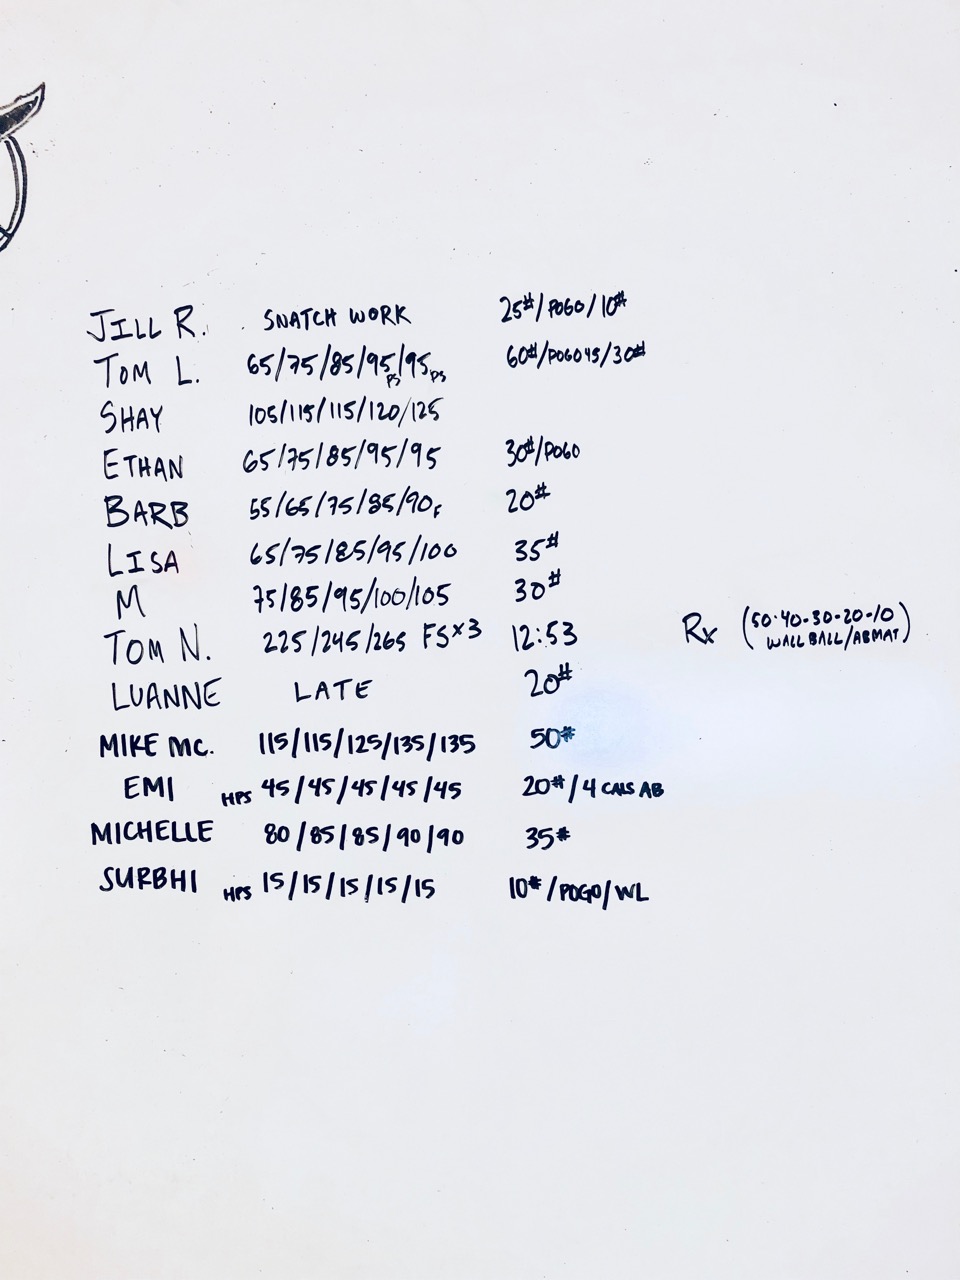 JILL R. SNATCH WORK 25#/POGO/10#
TOM L. 65/75/85/95PS/95PS 60#/POGO45/30#
SHAY 105/115/115/120/125
ETHAN 65/75/85/95/95 30#/POGO
BARB 55/65/75/85/90F 20#
LISA 65/75/85/95/100 35#
M 75/85/95/100/105 30#
TOM N. 225/245/265 FS×3 12:53 Rx (50-40-30-20-10
WALL BALL/ABMAT)
LUANNE LATE 20#
MIKE MC. 115/115/125/135/135 50#
EMI HPS 45/45/45/45/45 20#/4 CALS AB
MICHELLE 80/85/85/90/90 35#
SURBHI HPS 15/15/15/15/15 10#/POGO/WL